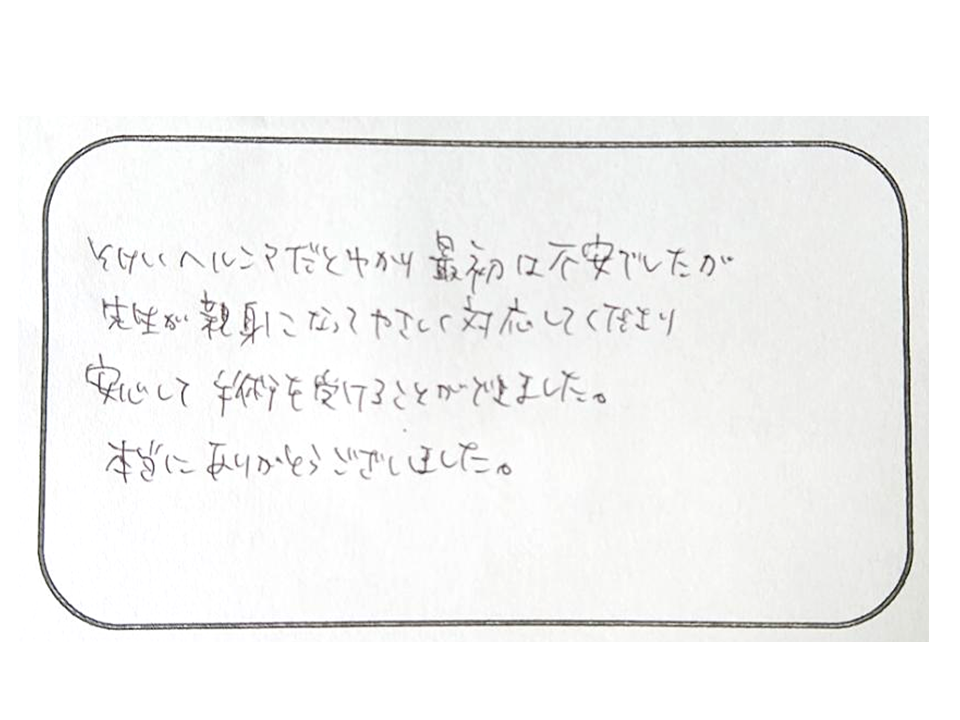 そけいヘルニアだとわかり最初は不安でしたが
先生が親身になってやさしく対応してくださり
安心して手術を受けることができました。
本当にありがとうございました。